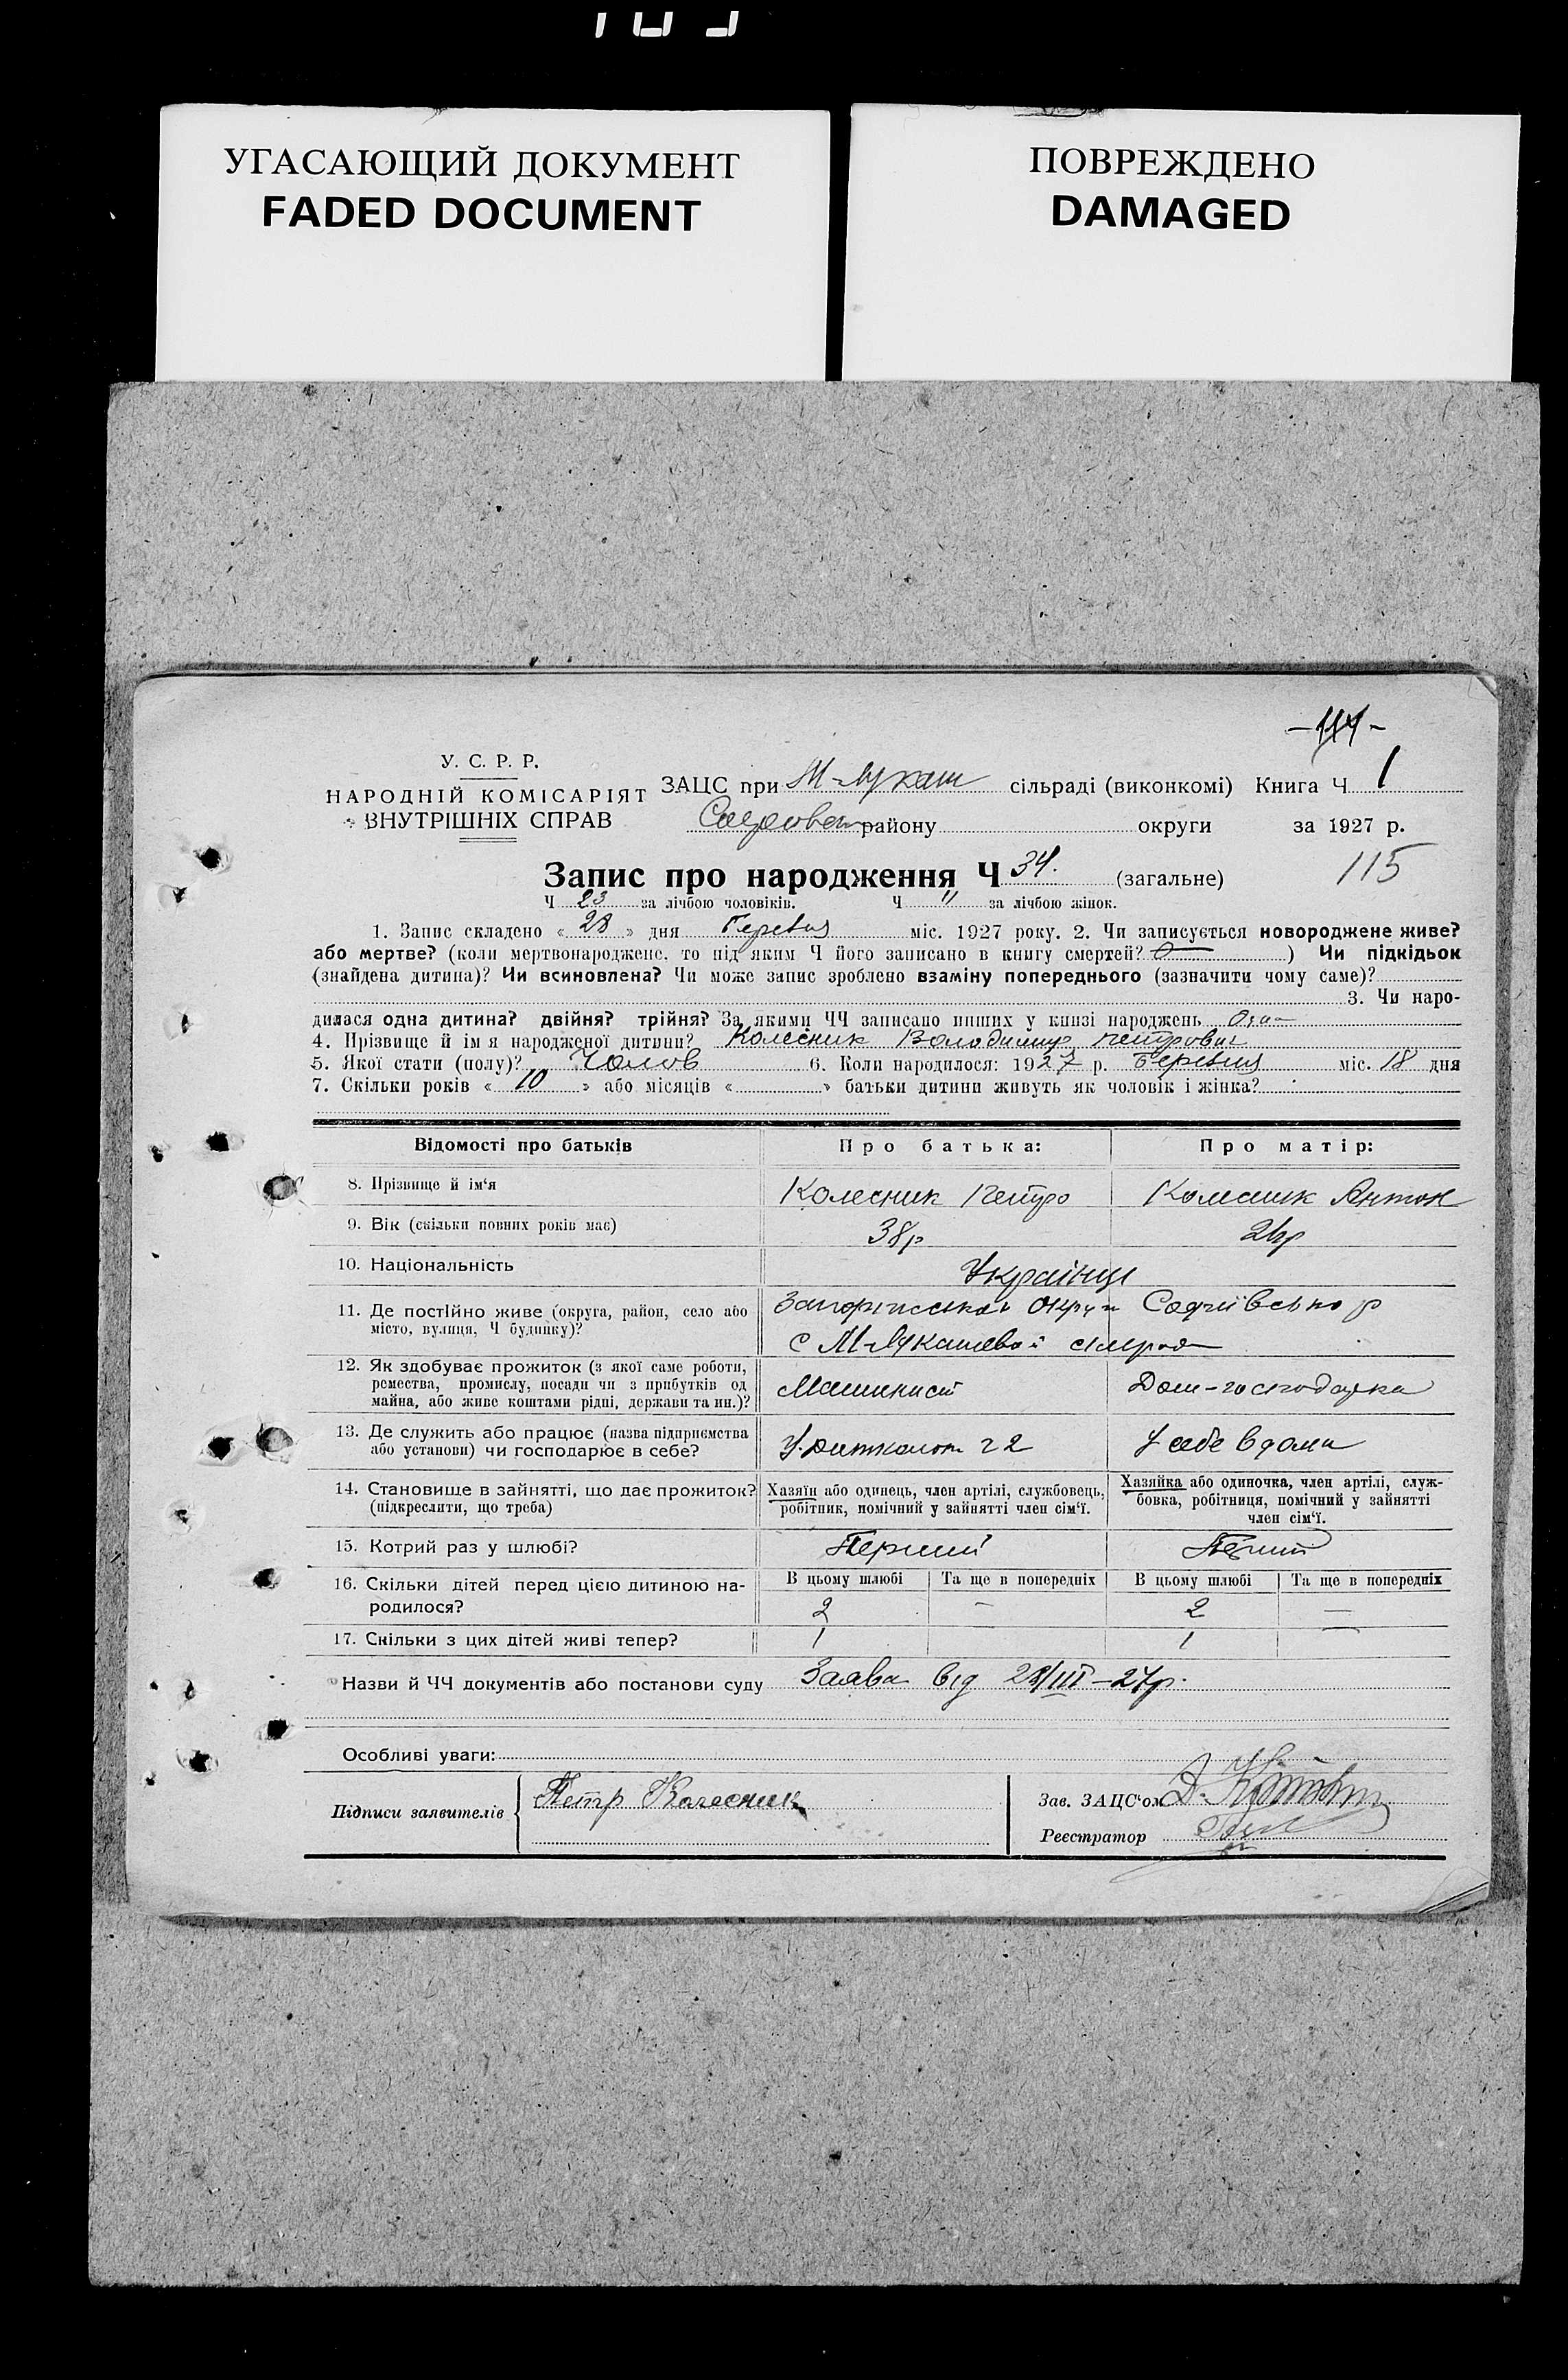 УГАСАЮЩИЙ ДОКУМЕНТ
FADED DOCUMENT
ПОВРЕЖДЕНО
DAMAGED
У. С. Р. Р.
НАРОДНІЙ КОМІСАРІЯТ
ВНУТРІШНІХ СПРАВ
ЗАЦС при М-Лукаш сільраді (виконкомі) Книга Ч 1
району округи за 1927 р.
Запис про народження Ч 34. (загальне) 115
Ч 23 за лічбою чоловіків. Ч " за лічбою жінок.
1. Запис складено « 28 » дня Березня міс. 1927 року. 2. Чи записується новороджене живе?
або мертве? (коли мертвонароджене, то під яким Ч його записано в книгу смертей? ) Чи підкідьок
(знайдена дитина)? Чи всиновлена? Чи може запис зроблено взаміну попереднього (зазначити чому саме)?
3. Чи наро-
дилася одна дитина? двійня? трійня? За якими ЧЧ записано инших у книзі народжень
4. Прізвище й ім я народженої дитини? Колесник Володимир Петрович
5. Якої стати (полу)? Чолов 6. Коли народилося: 1927 р. Березня міс. 18 дня
7. Скільки років « 10 » або місяців « » батьки дитини живуть як чоловік і жінка?
Відомості про батьків Про батька: Про матір:
8. Прізвище й ім‘я Колесник Петро Колесник Антон
9. Вік (скільки повних років має) 38р
10. Національність Українці
11. Де постійно живе (округа, район, село або
місто, вулиця, Ч будинку)?
Софіївсько р
с М-Лукашевой
12. Як здобуває прожиток (з якої саме роботи,
ремества, промислу, посади чи з прибутків од
майна, або живе коштами рідні, держави та ин.)?
Машинист Дом-господарка
13. Де служить або працює (назва підприємства
або установи) чи господарює в себе?
У себе вдома
14. Становище в зайнятті, що дає прожиток?
(підкреслити, що треба)
Хазяїн або одинець, член артілі, службовець,
робітник, помічний у зайнятті член сім‘ї.
Хазяйка або одиночка, член артілі, служ-
бовка, робітниця, помічний у зайнятті
член сім‘ї.
15. Котрий раз у шлюбі? Перший
16. Скільки дітей перед цією дитиною на-
родилося?
В цьому шлюбі Та ще в попередніх В цьому шлюбі Та ще в попередніх
2 — 2 —
17. Скільки з цих дітей живі тепер? 1 1 —
Назви й ЧЧ документів або постанови суду Заява від 28/III–27р.
Особливі уваги:
Підписи заявителів Петр Колесник
Зав. ЗАЦС‘ом
Реєстратор